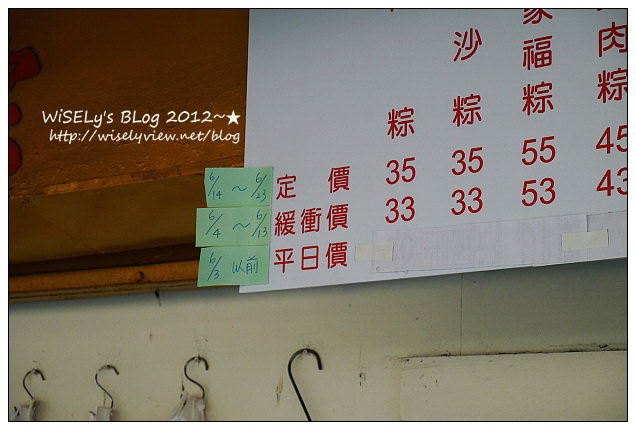 WiSELy's BLog 2012~★
http://wiselyview.net/blog
沙 家福 肉
粽 粽 粽 粽
6/14 ~ 6/23 定 價 35 35 55 45
6/4 ~ 6/13 緩衝價 33 33 53 43
6/3 以前 平日價